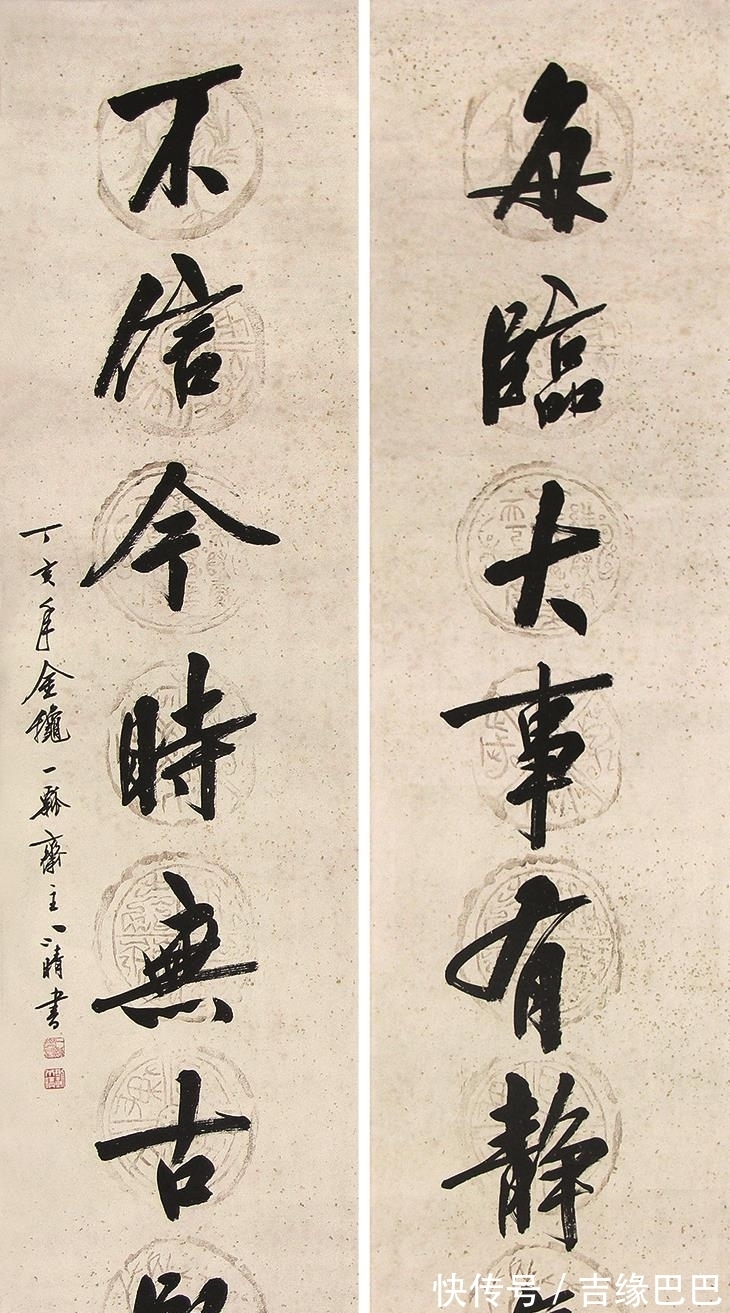 每臨大事有静
不信今時無古
丁亥年金一瓢齋主晴书
快传号 / 吉缘巴巴